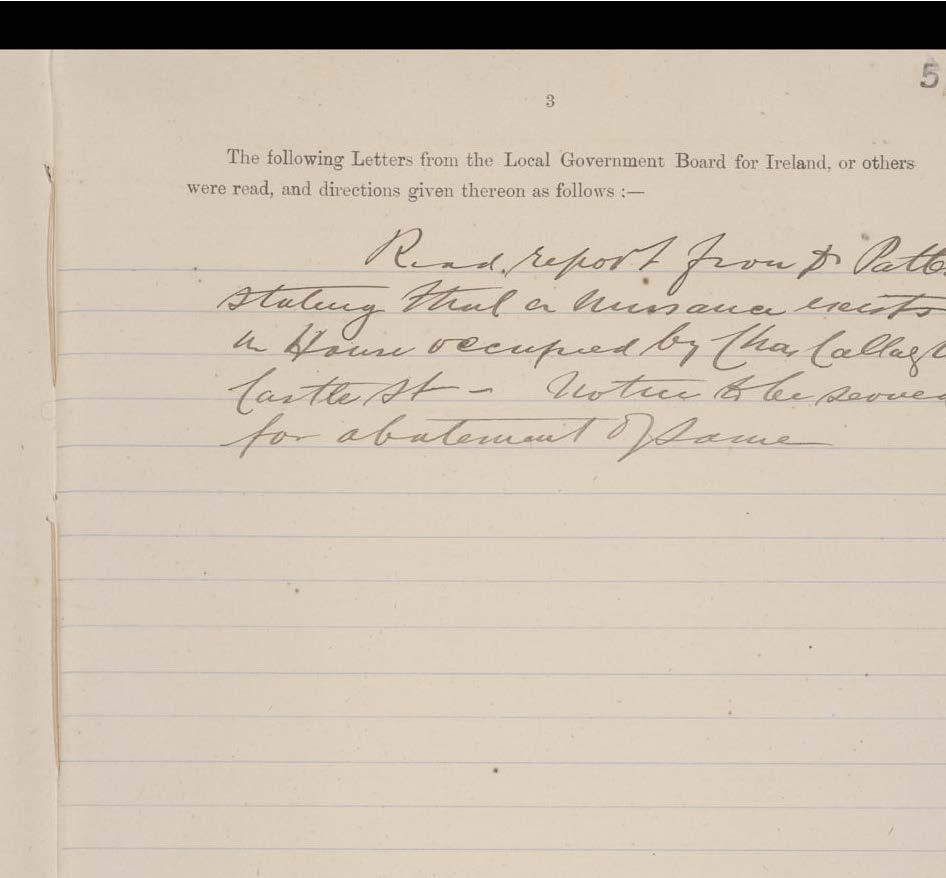 5
3
The following Letters from the Local Government Board for Ireland, or others
were read, and directions given thereon as follows :—
Read report from Dr Patte
stating that a nuisance exists
in House occupied by Chas Callag
Castle St – Notice to be served
for abatement of same